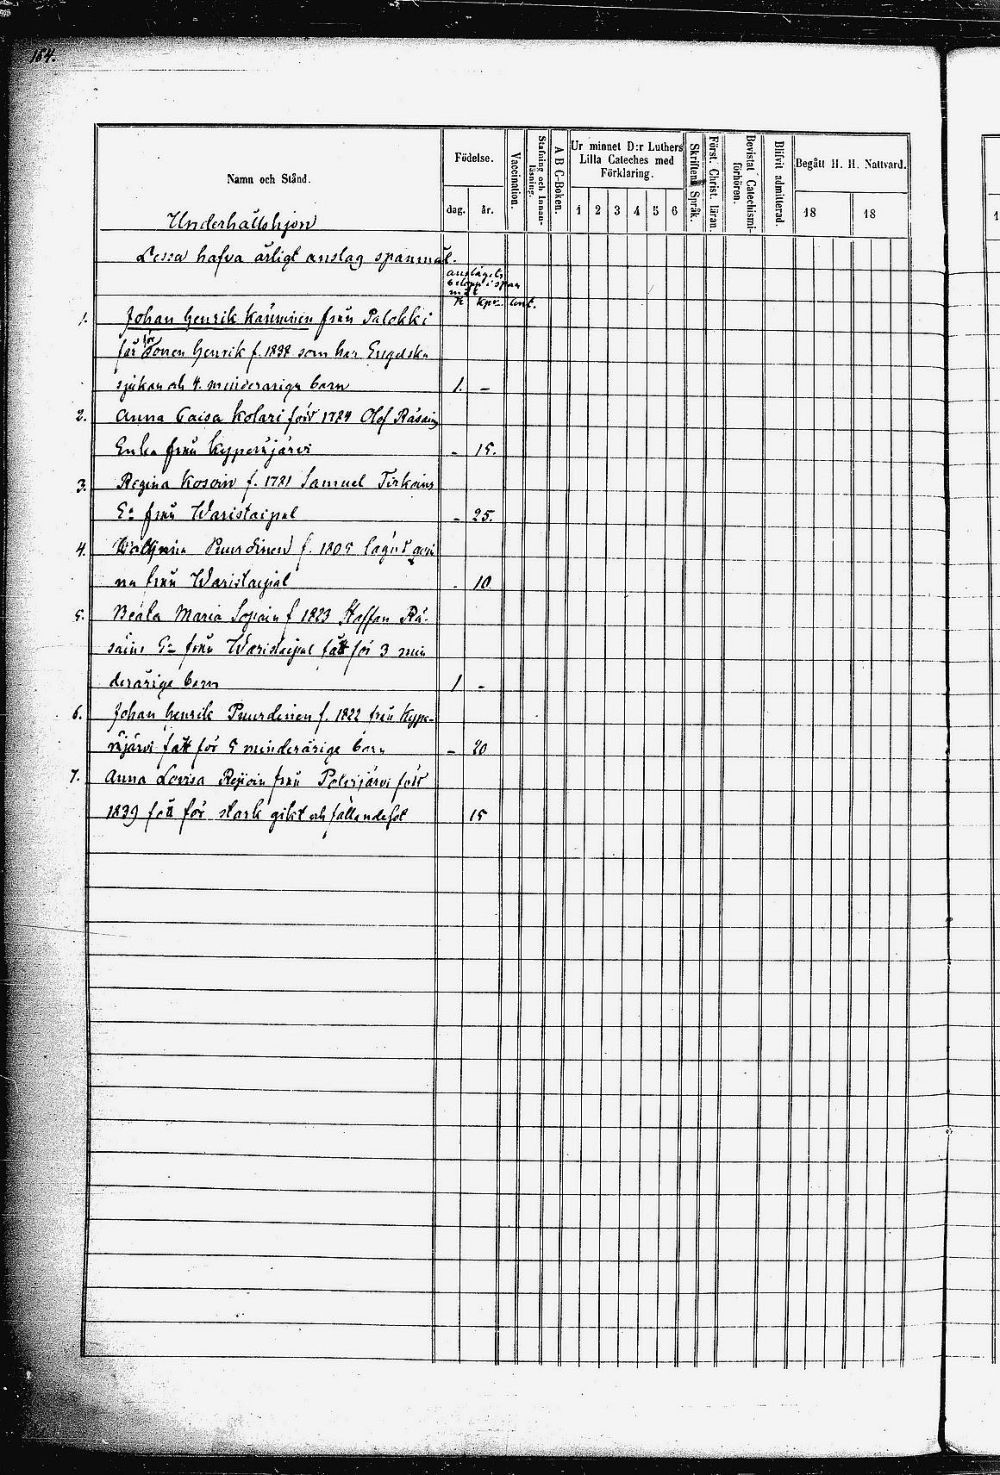 184.
Namn och Stånd.
Födelse.
dag. år.
Vaccination.
Stafning och Innan-läsning.
A B C-Boken.
Ur minnet D:r Luthers
Lilla Cateches med
Förklaring.
1 2 3 4 5 6
Skriftens Språk.
Först. Christ. läran.
Bevistat Catechismi-förhören.
Blifvit admitterad.
Begått H. H. Nattvard.
18 18
Underhållshjon
Dessa hafva årligt anslag spanmål.
anslagets
belopp i span
mål
1. Johan Henrik från Palokki
för Sonen Henrik f. 1838 som har Engelska
sjukan och 4. minderåriga barn 1. –
2. Anna Caisa Kolari född 1784 Olof Räsäin
Enka från Kypäräjärvi – 15.
3. Regina Kosoin f. 1781 Samuel
E:a från Waristaipal – 25.
4. f. 1805
na från Waristaipal - 10
5. Beata Maria Sopain f 1823 Staffan Rä-
säins E:a från Waristaipal fått för 3 min
derårige barn 1 –
6. Johan Henrik f. 1822 från Kypä-
räjärvi fått för 5 minderårige barn – 20
7. Anna Lovisa från Petrijärvi född
1839 fått för stark gikt och fallandesot 15